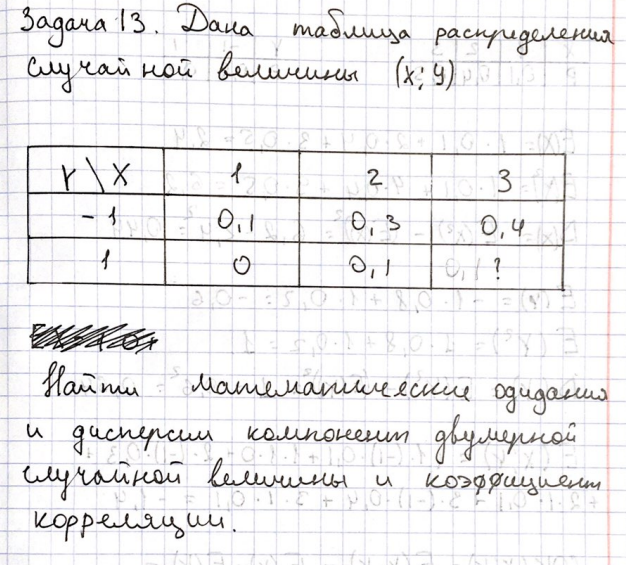 Задача 13. Дана таблица распределения
случайной величины (X; Y)
Y \ X 1 2 3
-1 0,1 0,3 0,4
1 0 0,1 ?
Найти математические одидания
и дисперсии компонент двумерной
случайной величины и коэффициент
корреляции.